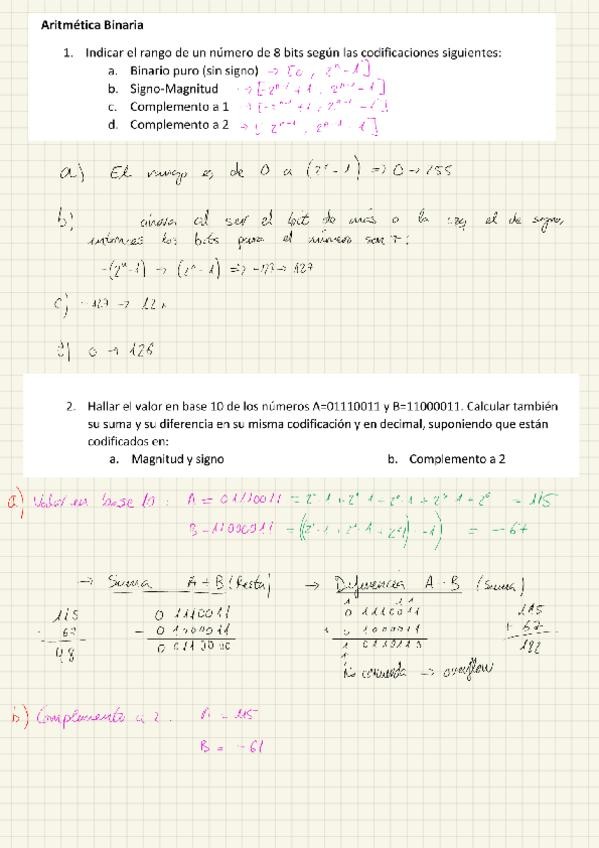 Aritmética Binaria
1. Indicar el rango de un número de 8 bits según las codificaciones siguientes:
a. Binario puro (sin signo) → [0, 2ⁿ-1]
b. Signo-Magnitud → [-2ⁿ⁻¹+1, 2ⁿ⁻¹-1]
c. Complemento a 1
d. Complemento a 2
a) El rango es de 0 a (2ⁿ-1) => 0 → 255
b) al ser el bit de más a la el de signo,
entonces los bits para el número son 7:
-(2ⁿ-1) → (2ⁿ-1) => -127 → 127
c) -127 →
d) 0 → 126
2. Hallar el valor en base 10 de los números A=01110011 y B=11000011. Calcular también
su suma y su diferencia en su misma codificación y en decimal, suponiendo que están
codificados en:
a. Magnitud y signo b. Complemento a 2
a) Valor en base 10: A = 01110011 = 115
B = 11000011 = -67
→ Suma A + B (Resta) → Diferencia A - B (Suma)
115 0 1110011 0 1110011 115
- 67 - 0 1000011 + 0 1000011 + 67
48 0 0110000 182
→ overflow
b) Complemento a 2: A = 115
B = -61